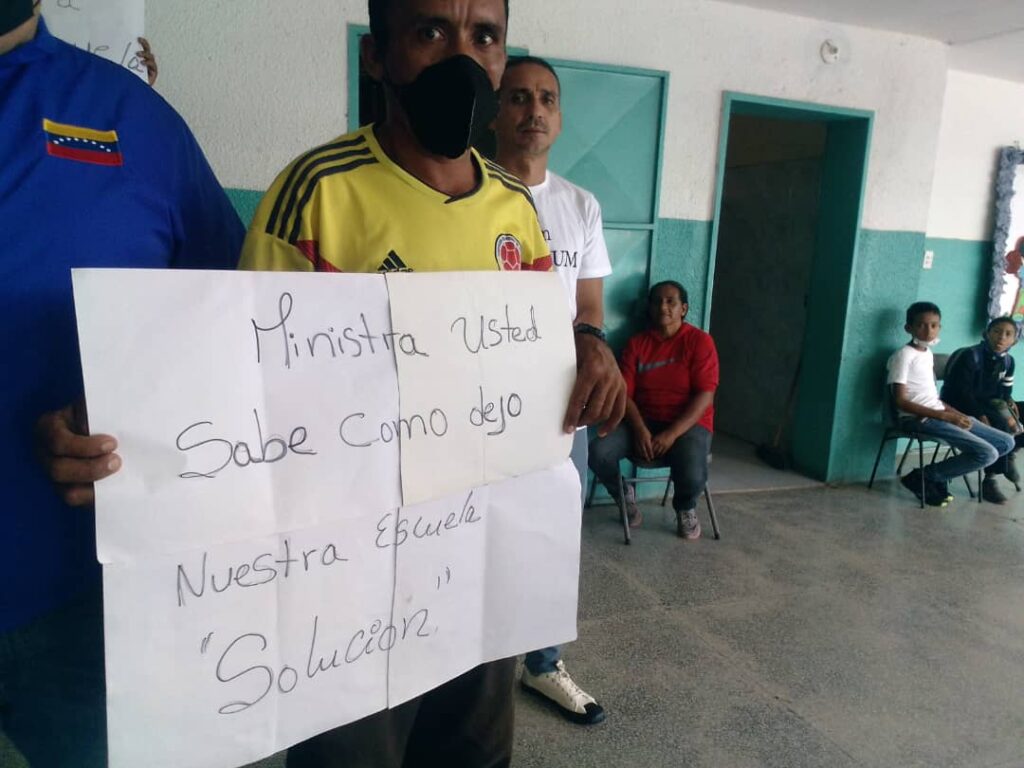 Ministra Usted
Sabe Como dejo
Nuestra Escuela
"Solucion."
UM